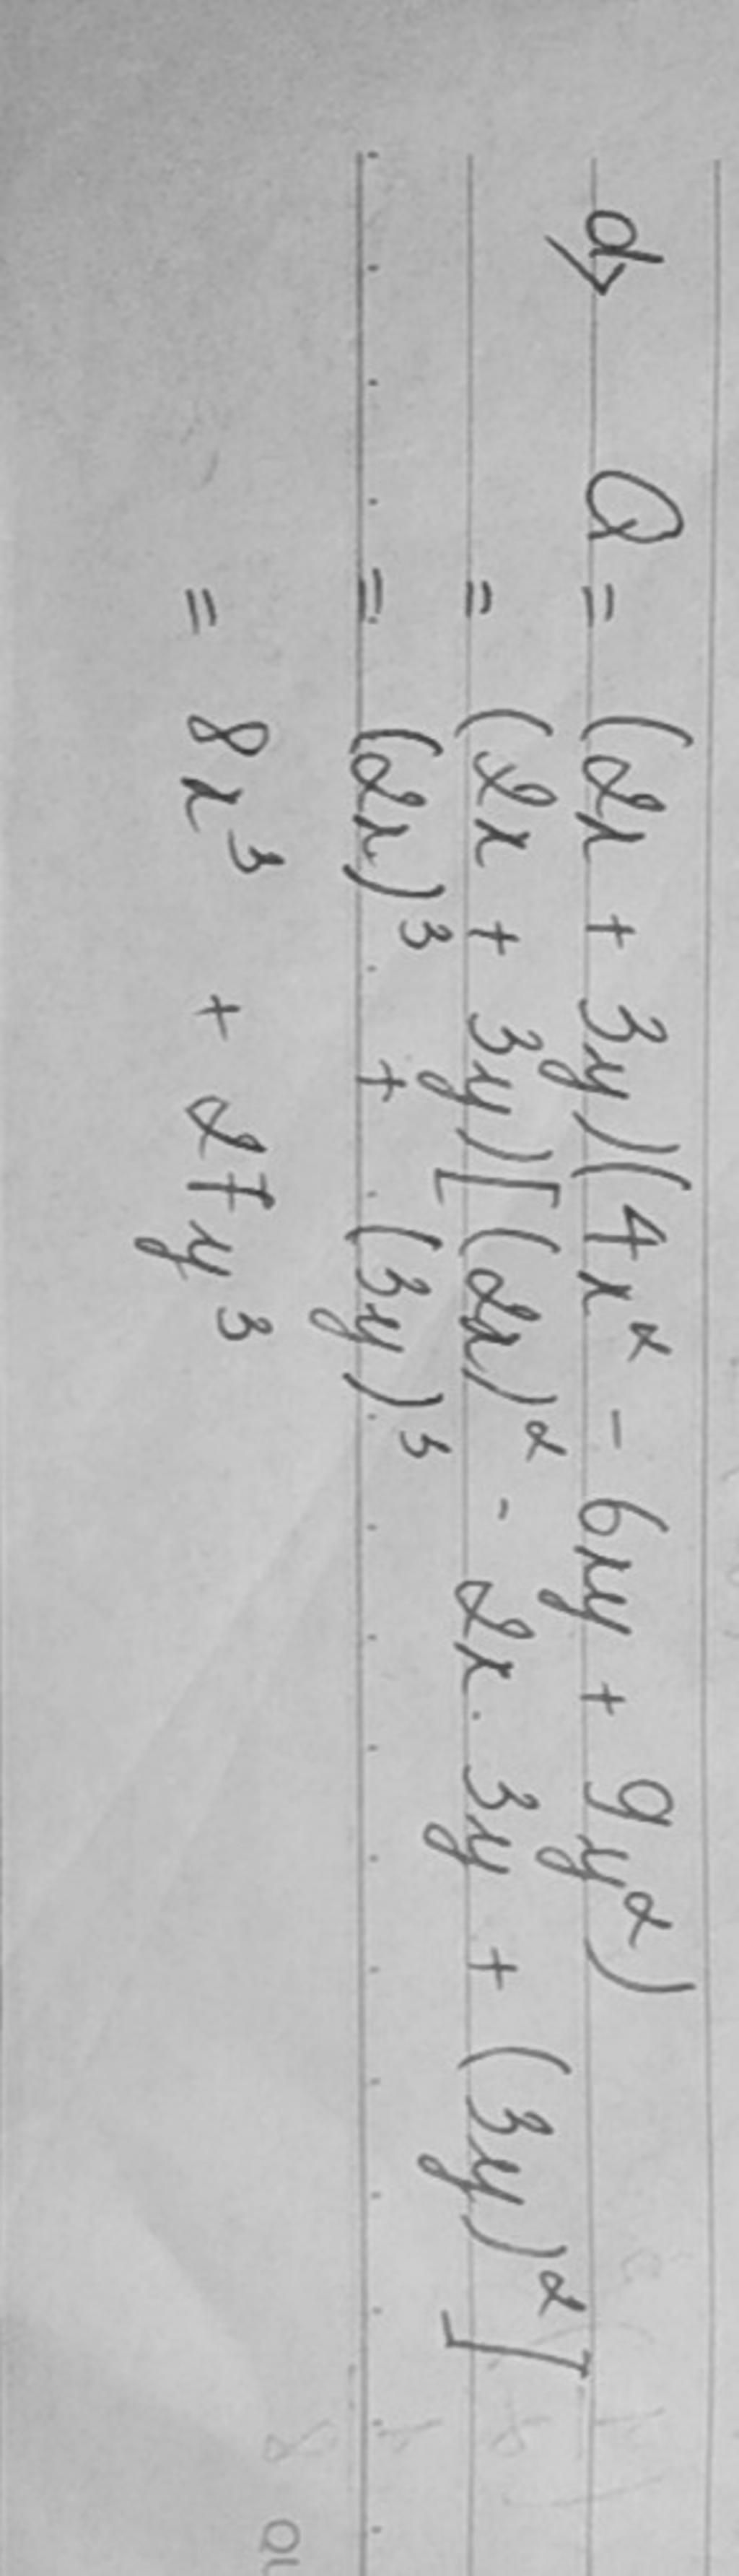 d) Q = (2x + 3y)(4x² - 6xy + 9y²)
= (2x + 3y)[(2x)² - 2x . 3y + (3y)²]
= (2x)³ + (3y)³
= 8x³ + 27y³